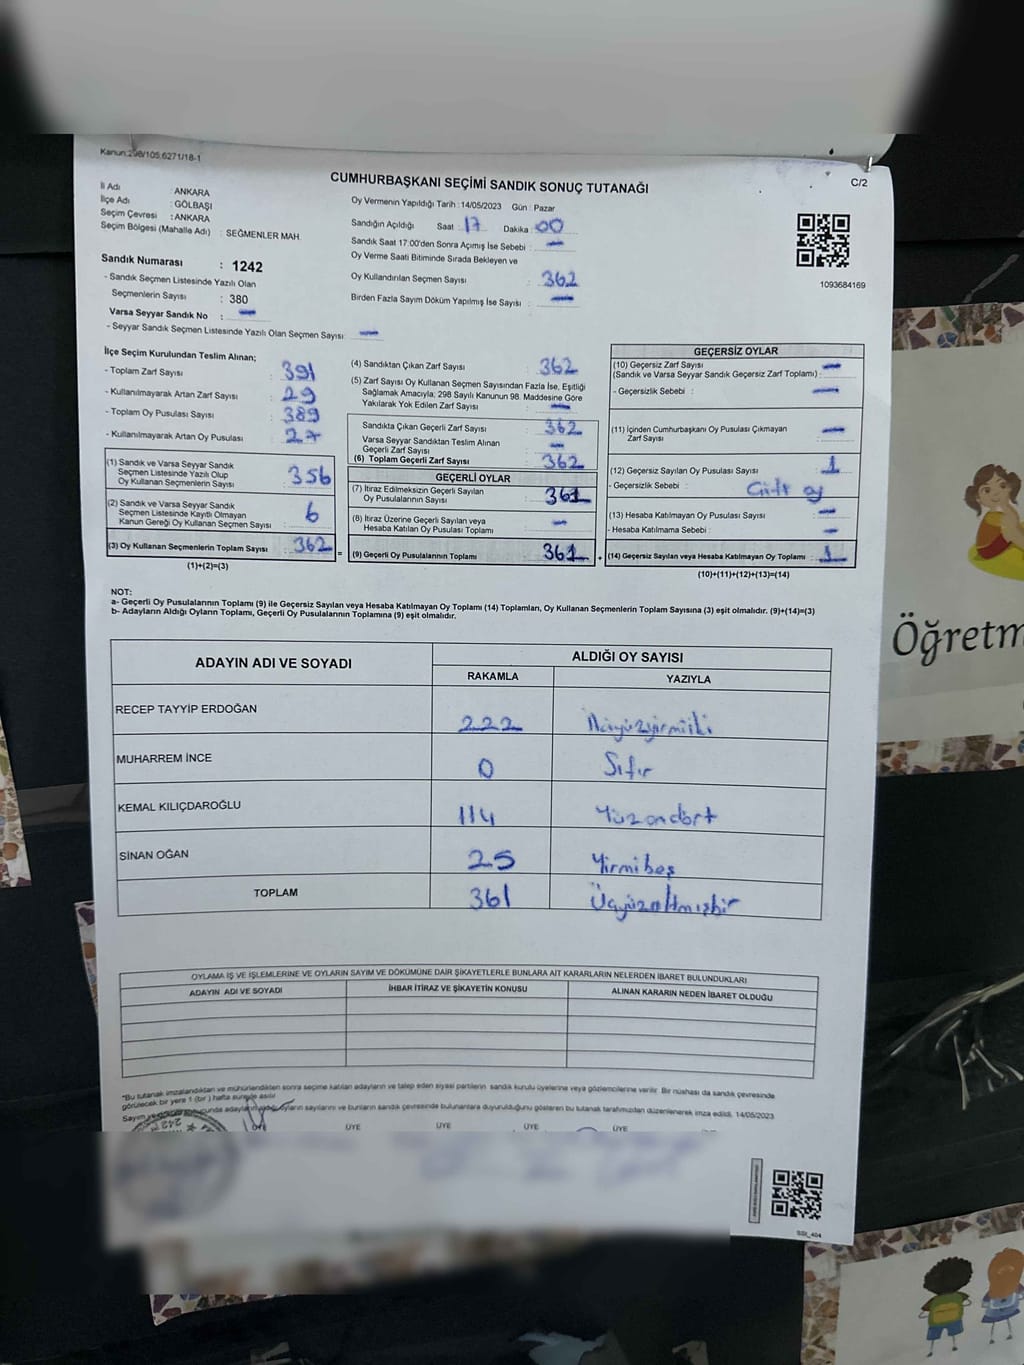 Kanun:298/105,6271/18-1
CUMHURBAŞKANI SEÇİMİ SANDIK SONUÇ TUTANAĞI
C/2
İl Adı : ANKARA
İlçe Adı : GÖLBAŞI
Seçim Çevresi : ANKARA
Seçim Bölgesi (Mahalle Adı) : SEĞMENLER MAH.
Sandık Numarası : 1242
- Sandık Seçmen Listesinde Yazılı Olan
Seçmenlerin Sayısı : 380
Varsa Seyyar Sandık No : —
- Seyyar Sandık Seçmen Listesinde Yazılı Olan Seçmen Sayısı: —
Oy Vermenin Yapıldığı Tarih :14/05/2023 Gün : Pazar
Sandığın Açıldığı Saat : 17 Dakika : 00
Sandık Saat 17:00'den Sonra Açımış İse Sebebi : —
Oy Verme Saati Bitiminde Sırada Bekleyen ve
Oy Kullandırılan Seçmen Sayısı : 362
Birden Fazla Sayım Döküm Yapılmış İse Sayısı : —
1093684169
İlçe Seçim Kurulundan Teslim Alınan;
- Toplam Zarf Sayısı : 391
- Kullanılmayarak Artan Zarf Sayısı : 29
- Toplam Oy Pusulası Sayısı : 389
- Kullanılmayarak Artan Oy Pusulası : 27
(1) Sandık ve Varsa Seyyar Sandık
Seçmen Listesinde Yazılı Olup
Oy Kullanan Seçmenlerin Sayısı : 356
(2) Sandık ve Varsa Seyyar Sandık
Seçmen Listesinde Kayıtlı Olmayan
Kanun Gereği Oy Kullanan Seçmen Sayısı : 6
(3) Oy Kullanan Seçmenlerin Toplam Sayısı : 362
(1)+(2)=(3)
(4) Sandıktan Çıkan Zarf Sayısı : 362
(5) Zarf Sayısı Oy Kullanan Seçmen Sayısından Fazla İse, Eşitliği
Sağlamak Amacıyla; 298 Sayılı Kanunun 98. Maddesine Göre
Yakılarak Yok Edilen Zarf Sayısı : —
Sandıkta Çıkan Geçerli Zarf Sayısı : 362
Varsa Seyyar Sandıktan Teslim Alınan
Geçerli Zarf Sayısı : —
(6) Toplam Geçerli Zarf Sayısı : 362
GEÇERLİ OYLAR
(7) İtiraz Edilmeksizin Geçerli Sayılan
Oy Pusulalarının Sayısı : 361
(8) İtiraz Üzerine Geçerli Sayılan veya
Hesaba Katılan Oy Pusulası Toplamı : —
= (9) Geçerli Oy Pusulalarının Toplamı 361 +
GEÇERSİZ OYLAR
(10) Geçersiz Zarf Sayısı
(Sandık ve Varsa Seyyar Sandık Geçersiz Zarf Toplamı) : —
- Geçersizlik Sebebi : —
(11) İçinden Cumhurbaşkanı Oy Pusulası Çıkmayan
Zarf Sayısı : —
(12) Geçersiz Sayılan Oy Pusulası Sayısı : 1
- Geçersizlik Sebebi : Çift oy
(13) Hesaba Katılmayan Oy Pusulası Sayısı : —
- Hesaba Katılmama Sebebi : —
(14) Geçersiz Sayılan veya Hesaba Katılmayan Oy Toplamı : 1
(10)+(11)+(12)+(13)=(14)
NOT:
a- Geçerli Oy Pusulalarının Toplamı (9) ile Geçersiz Sayılan veya Hesaba Katılmayan Oy Toplamı (14) Toplamları, Oy Kullanan Seçmenlerin Toplam Sayısına (3) eşit olmalıdır. (9)+(14)=(3)
b- Adayların Aldığı Oyların Toplamı, Geçerli Oy Pusulalarının Toplamına (9) eşit olmalıdır.
ADAYIN ADI VE SOYADI ALDIĞI OY SAYISI
RAKAMLA YAZIYLA
RECEP TAYYİP ERDOĞAN 222 İkiyüzyirmiiki
MUHARREM İNCE 0 Sıfır
KEMAL KILIÇDAROĞLU 114 Yüzondört
SİNAN OĞAN 25 Yirmibeş
TOPLAM 361 Üçyüzaltmışbir
OYLAMA İŞ VE İŞLEMLERİNE VE OYLARIN SAYIM VE DÖKÜMÜNE DAİR ŞİKAYETLERLE BUNLARA AİT KARARLARIN NELERDEN İBARET BULUNDUKLARI
ADAYIN ADI VE SOYADI İHBAR İTİRAZ VE ŞİKAYETİN KONUSU ALINAN KARARIN NEDEN İBARET OLDUĞU
*Bu tutanak imzalandıktan ve mühürlendikten sonra seçime katılan adayların ve talep eden siyasi partilerin sandık kurulu üyelerine veya gözlemcilerine verilir. Bir nüshası da sandık çevresinde
görülecek bir yere 1 (bir) hafta süreyle asılır
Sayım ve adayların aldığı oyların sayılarını ve bunların sandık çevresinde bulunanlara duyurulduğunu gösteren bu tutanak tarafımızdan düzenlenerek imza edildi. 14/05/2023
ÜYE ÜYE ÜYE ÜYE
1242
SSİ_404
Öğretm